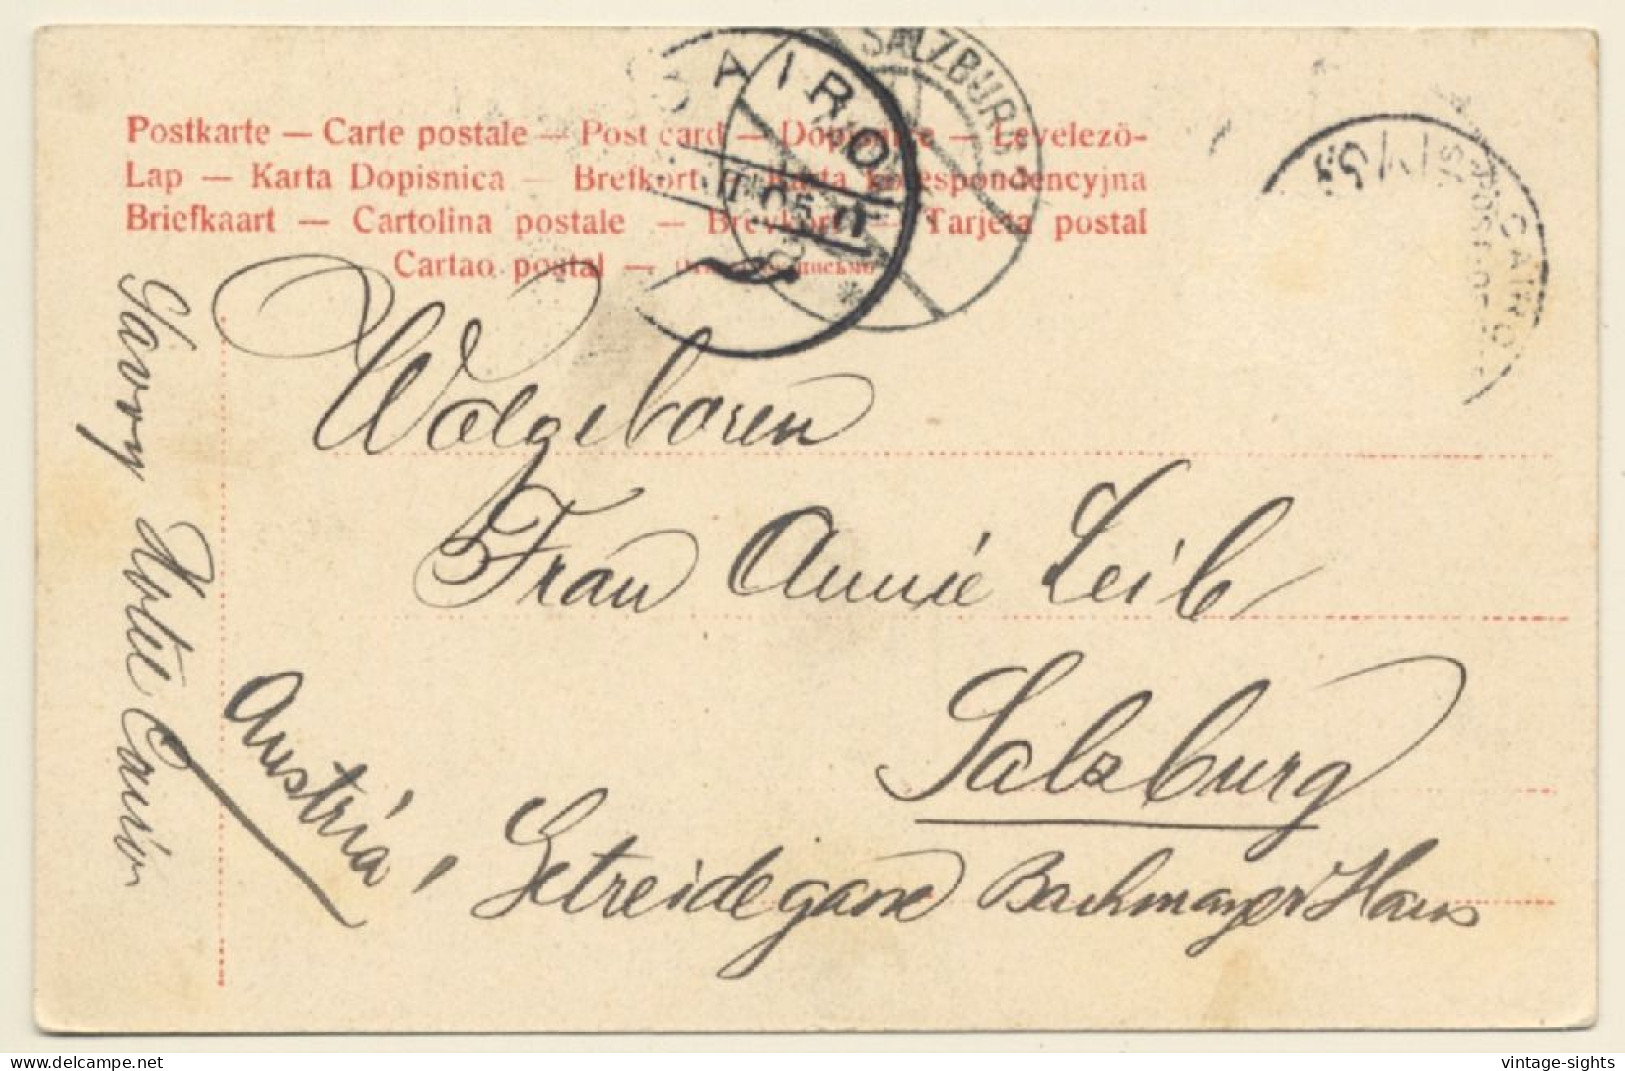 Postkarte — Carte postale — Post card — Dopisnice — Levelezö-
Lap — Karta Dopisnica — Brefkort — Karta korespondencyjna
Briefkaart — Cartolina postale — Brevkort — Tarjeta postal
Cartao postal —
CAIRO
SALZBURG
CAIRO
Wolgeboren
Frau Annie Leib
Salzburg
Getreidegasse Bachmayer Haus
Austria,
Savoy Hotel Cairo
delcampe.net
vintage-sights